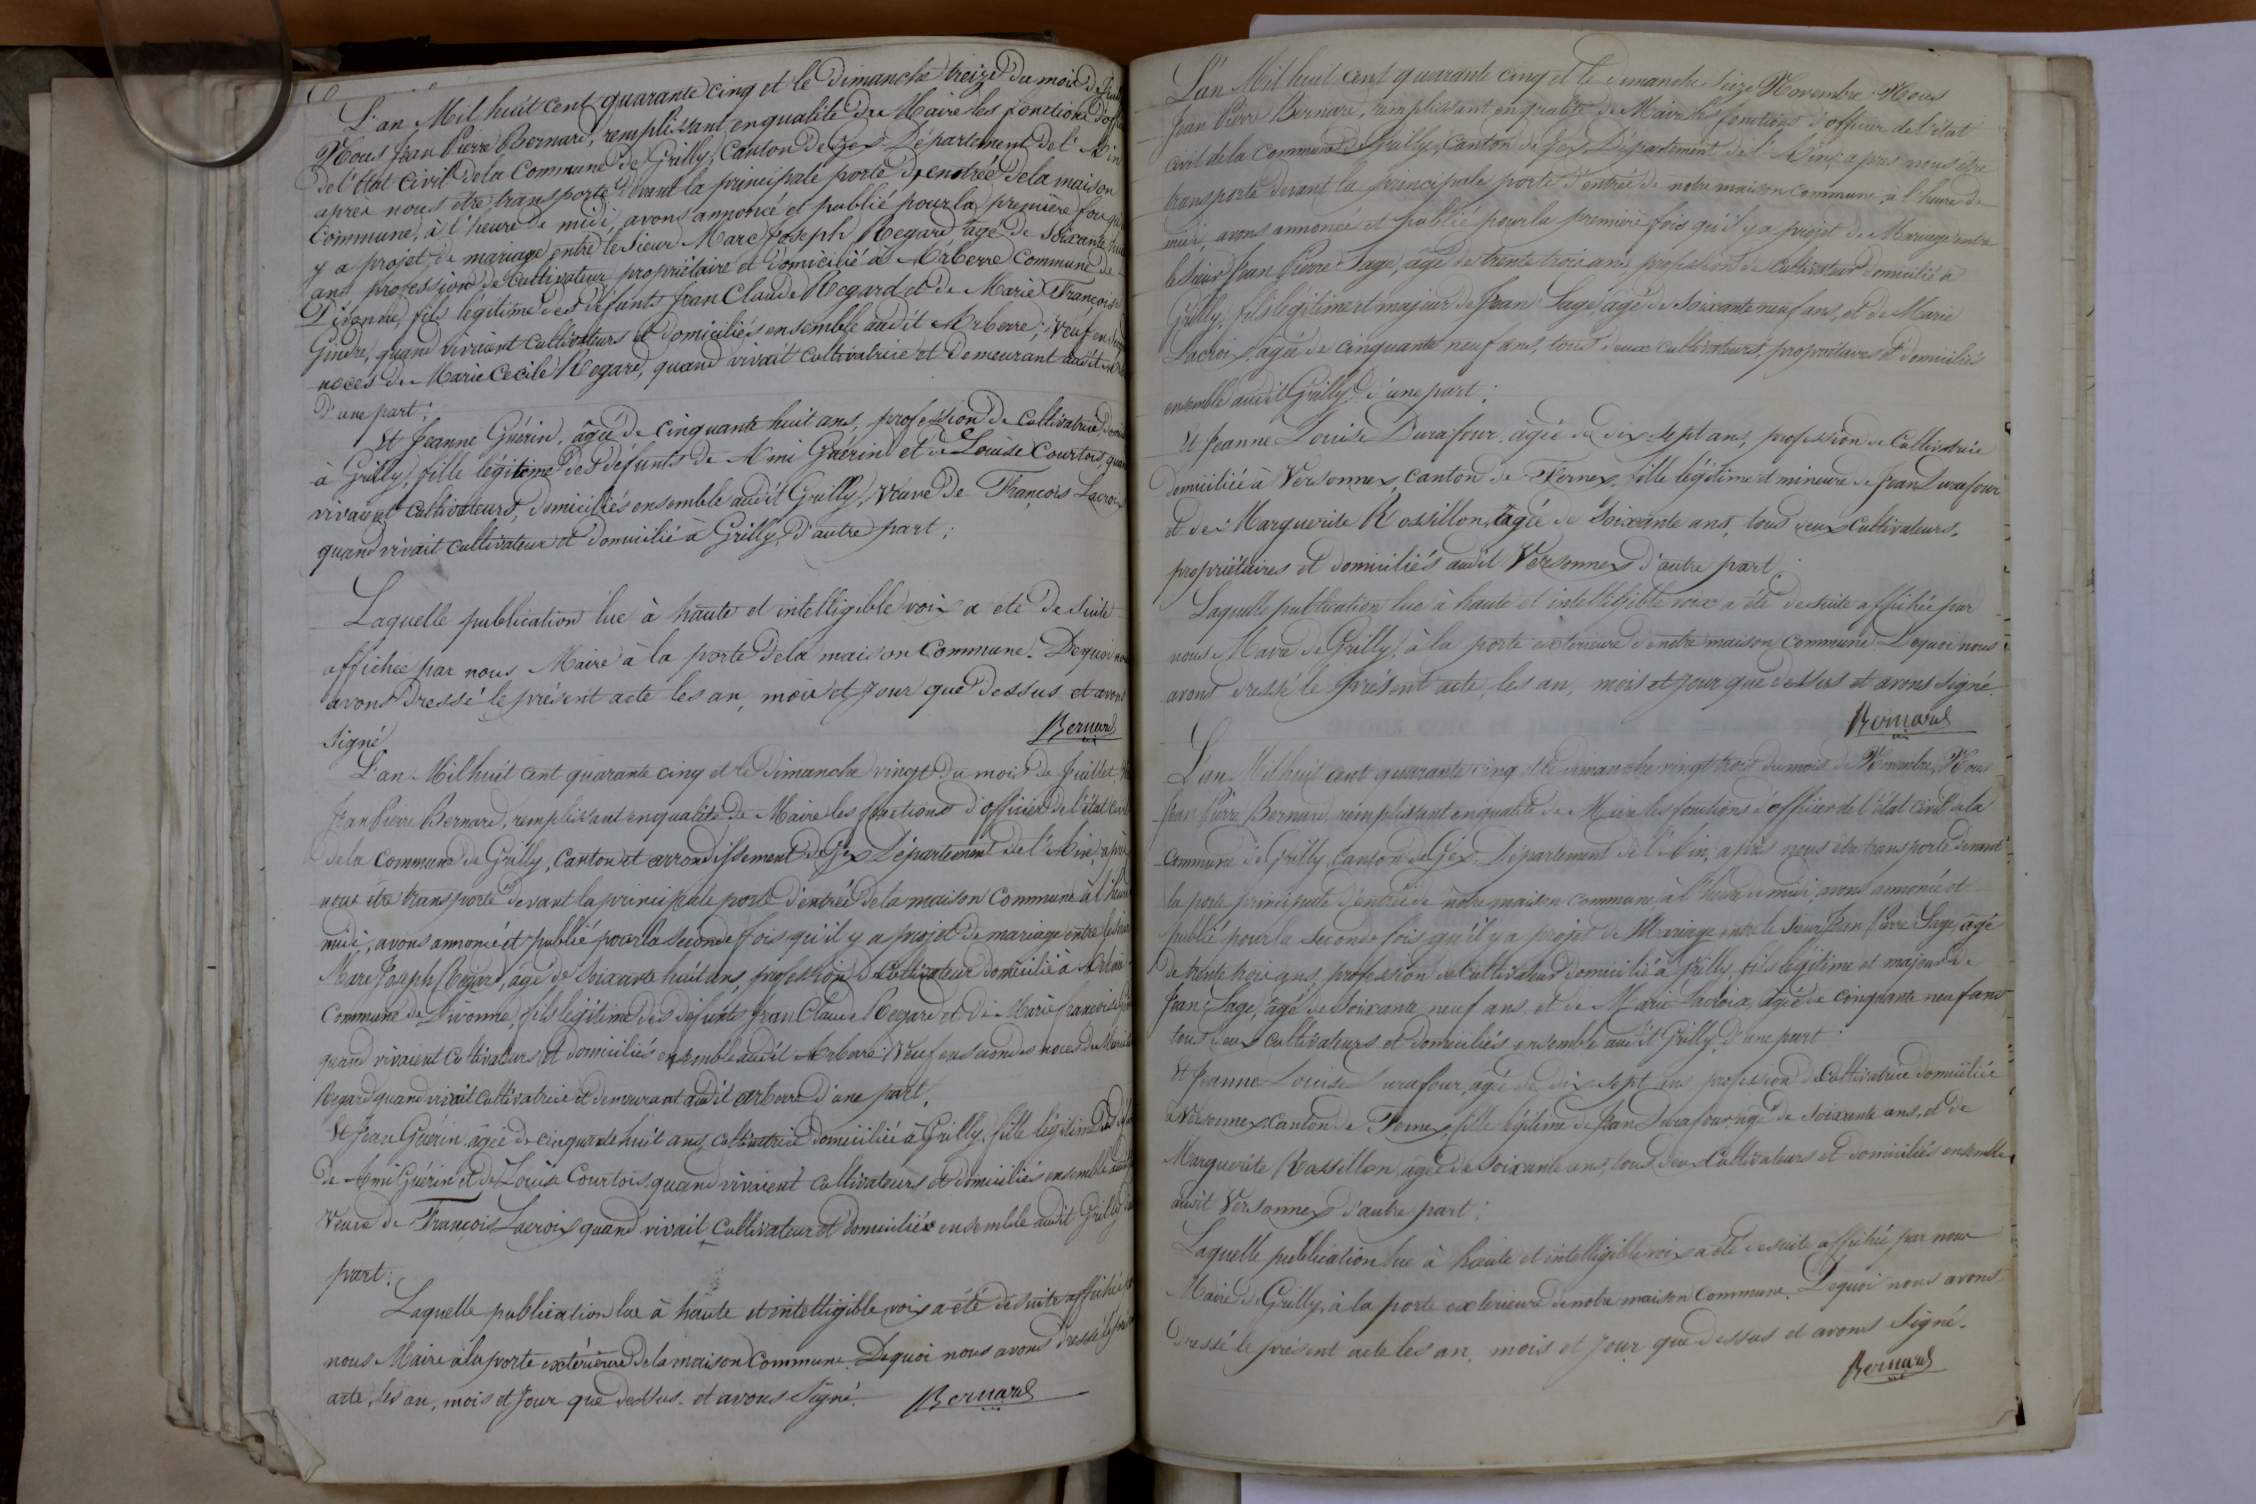 L'an Mil huit cent quarante cinq et le Dimanche treize du mois de
Nous Jean Pierre Bernard, remplissant en qualité de Maire les fonctions
de l'état civil de la Commune de Grilly, Canton de Gex Département de l'Ain
après nous être transporté devant la principale porte d'entrée de la maison
Commune, à l'heure de midi, avons annoncé et publié pour la première fois
y a projet de mariage entre le Sieur Marc Joseph Regard âgé de soixante
ans profession de Cultivateur propriétaire et domicilié à Arberre Commune de
Divonne, fils légitime des défunts Jean Claude Regard et de Marie Françoise
Gindre, quand vivaient cultivateurs et domiciliés ensemble audit Arberre, veuf en
noces de Marie Cecile Regard, quand vivait cultivatrice et demeurant audit
d'une part;
Et Jeanne Guérin, âgée de cinquante huit ans, profession de cultivatrice
à Grilly, fille légitime des défunts de Ami Guérin et de Louise Courtois,
vivaient cultivateurs, domiciliés ensemble audit Grilly, Veuve de François Lacroix
quand vivait cultivateur et domicilié à Grilly, d'autre part;
Laquelle publication lue à haute et intelligible voix a été de suite
affichée par nous Maire à la porte de la maison commune. De quoi
avons dressé le présent acte les an, mois et jour que dessus et avons
signé Bernard
L'an Mil huit cent quarante cinq et le Dimanche vingt du mois de Juillet,
Jean Pierre Bernard, remplissant en qualité de Maire les fonctions d'officier de l'état
de la Commune de Grilly, Canton et arrondissement de Gex Département de l'Ain, après
nous être transporté devant la principale porte d'entrée de la maison Commune à l'heure
midi, avons annoncé et publié pour la seconde fois qu'il y a projet de mariage entre
Marc Joseph Regard, âgé de soixante huit ans, profession de Cultivateur domicilié à
Commune de Divonne, fils légitime des défunts Jean Claude Regard et de Marie françoise
quand vivaient cultivateurs et domiciliés ensemble audit Arberre Veuf en secondes noces de
Regard quand vivait cultivatrice et demeurant audit arberre d'une part,
Et Jean Guérin âgée de cinquante huit ans, cultivatrice domiciliée à Grilly, fille légitime
de Ami Guérin et de Louise Courtois quand vivaient cultivateurs et domiciliés ensemble
Veuve de François Lacroix quand vivait cultivateur et domiciliés ensemble audit Grilly
part:
Laquelle publication lue à haute et intelligible voix a été de suite affichée
nous Maire à la porte extérieure de la maison commune. De quoi nous avons dressé
acte, les an, mois et jour que dessus. et avons signé. Bernard
L'an Mil huit cent quarante cinq et le dimanche seize Novembre. Nous
Jean Pierre Bernard, remplissant en qualité de Maire les fonctions d'officier de l'état
civil de la Commune de Grilly, canton de Gex Département de l'Ain, après nous être
transporté devant la principale porte d'entrée de notre maison commune, à l'heure de
midi, avons annoncé et publié pour la première fois qu'il y a projet de Mariage entre
le Sieur Jean Pierre Sage, âgé de trente trois ans, profession de cultivateur domicilié à
Grilly, fils légitime et majeur de Jean Sage âgé de soixante neuf ans, et de Marie
Lacroix, agée de cinquante neuf ans, tous deux cultivateurs, propriétaires et domiciliés
ensemble audit Grilly, d'une part;
Et Jeanne Louise Durafour, âgée de dix sept ans, profession de Cultivatrice
domiciliée à Versonnex, canton de Fernex, fille légitime et mineure de Jean Durafour
et de Marguerite Rossillon, âgée de soixante ans, tous deux cultivateurs,
propriétaires et domiciliés audit Versonnex d'autre part,
Laquelle publication lue à haute et intelligible voix a été de suite affichée par
nous Maire de Grilly, à la porte extérieure de notre maison commune De quoi nous
avons dressé le présent acte, les an, mois et jour que dessus et avons signé.
Bernard
L'an Mil huit cent quarante cinq et le dimanche vingt trois du mois de Novembre, Nous
Jean Pierre Bernard, remplissant en qualité de Maire les fonctions d'officier de l'état civil de la
Commune de Grilly, Canton de Gex, Département de l'Ain, après nous être transporté devant
la porte principale d'entrée de notre maison commune, à l'heure de midi, avons annoncé et
publié pour la seconde fois qu'il y a projet de Mariage entre le Sieur Jean Pierre Sage, âgé
de trente trois ans, profession de Cultivateur domicilié à Grilly, fils légitime et majeur de
Jean Sage, âgé de soixante neuf ans, et de Marie Lacroix, âgée de cinquante neuf ans
tous deux cultivateurs et domiciliés ensemble audit Grilly, d'une part:
Et Jeanne Louise Durafour, âgée de dix sept ans profession de Cultivatrice domiciliée
à Versonnex, canton de Fernex, fille légitime de Jean Durafour, agé de soixante ans, et de
Marguerite Rossillon âgée de soixante ans, tous deux cultivateurs et domiciliés ensemble
audit Versonnex d'autre part;
Laquelle publication lue à haute et intelligible voix a été de suite affichée par nous
Maire de Grilly, à la porte extérieure de notre maison commune. De quoi nous avons
dressé le présent acte les an, mois et jour que dessus et avons signé.
Bernard